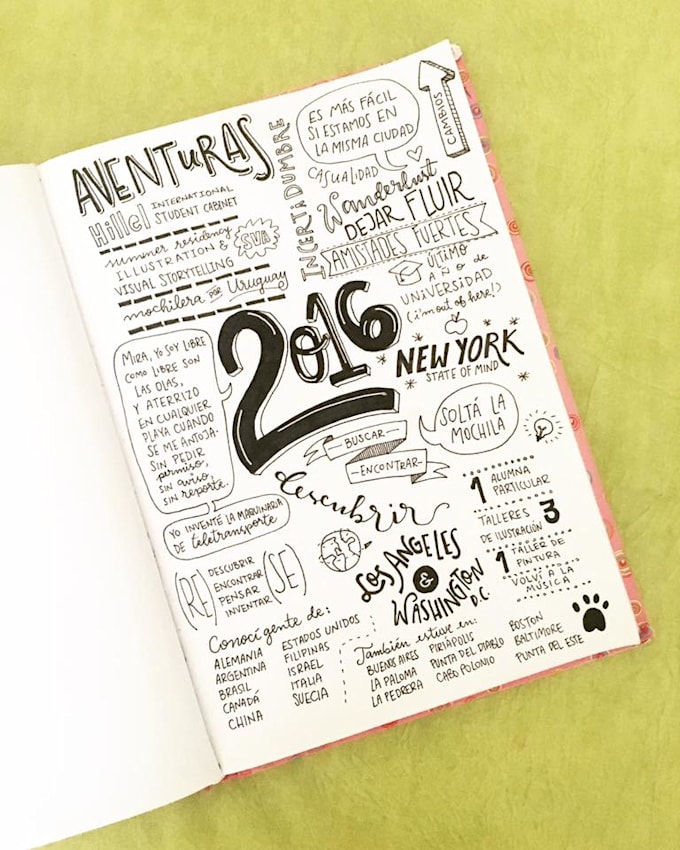 AVENTURAS
Hillel INTERNATIONAL
STUDENT CABINET
summer residency
ILLUSTRATION &
VISUAL STORYTELLING
SVA
mochilera POR Uruguay
INCERTADUMBRE
ES MÁS FÁCIL
SI ESTAMOS EN
LA MISMA CIUDAD
CASUALIDAD
CAMBIOS
Wanderlust
DEJAR FLUIR
AMISTADES FUERTES
ÚLTIMO
AÑO de
UNIVERSIDAD
(i'm out of here!)
2016
NEW YORK
STATE OF MIND
MIRA, YO SOY LIBRE
COMO LIBRE SON
LAS OLAS,
Y ATERRIZO
EN CUALQUIER
PLAYA CUANDO
SE ME ANTOJA.
SIN PEDIR
permiso,
SIN aviso,
SIN reporte.
SOLTÁ LA
MOCHILA
BUSCAR
ENCONTRAR
descubrir
YO INVENTÉ LA MAQUINARIA
DE teletransporte
1 ALUMNA
PARTICULAR
TALLERES
DE ILUSTRACIÓN 3
1 TALLER DE
PINTURA
VOLVÍ A LA
MÚSICA
(RE)
DESCUBRIR
ENCONTRAR
PENSAR
INVENTAR
(SE)
LOS ANGELES
&
WASHINGTON
D.C.
Conocí gente de:
ALEMANIA
ARGENTINA
BRASIL
CANADÁ
CHINA
ESTADOS UNIDOS
FILIPINAS
ISRAEL
ITALIA
SUECIA
También estuve en:
BUENOS AIRES
LA PALOMA
LA PEDRERA
PIRIÁPOLIS
PUNTA DEL DIABLO
CABO POLONIO
BOSTON
BALTIMORE
PUNTA DEL ESTE